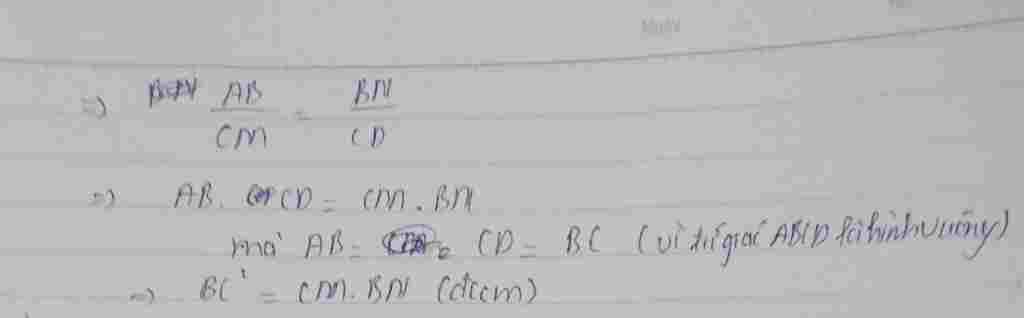 => AB/CM = BN/CD
=> AB. CD = CM. BN
mà AB = CD = BC (vì tứ giác ABCD là hình vuông)
=> BC² = CM. BN (đccm)